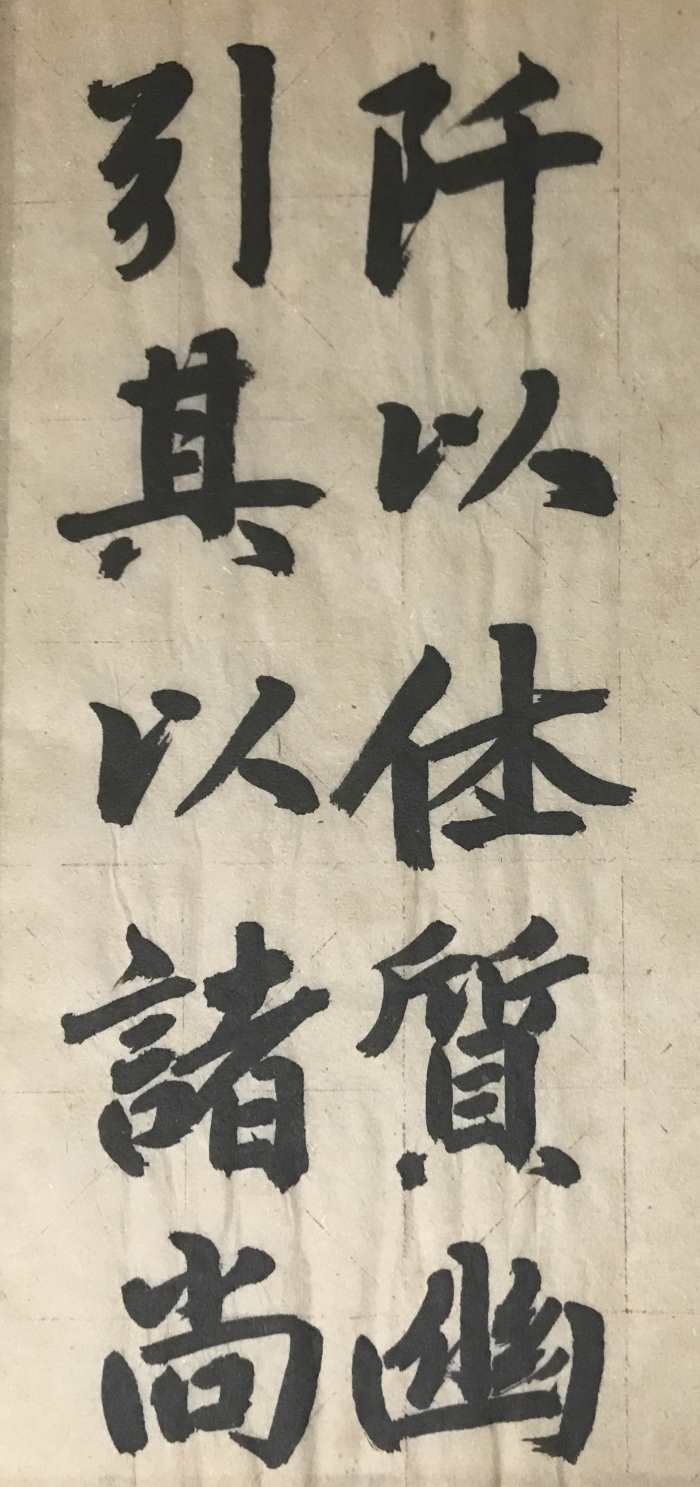 阡以体質幽
引其以諸尚